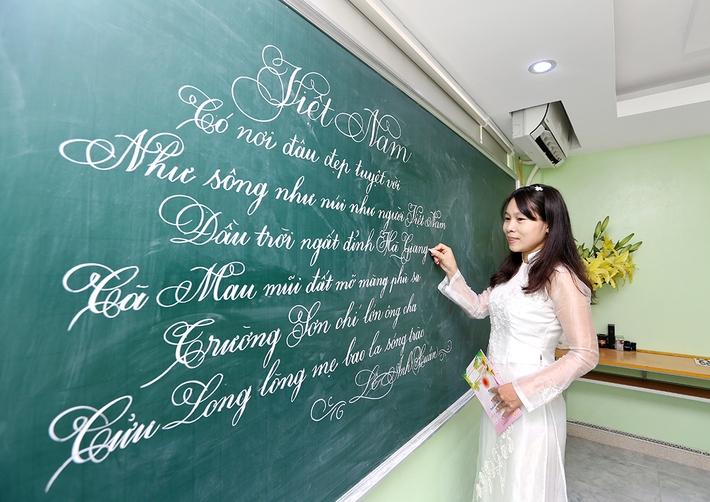 Việt Nam
Có nơi đâu đẹp tuyệt vời
Như sông như núi như người Việt Nam
Đầu trời ngất đỉnh Hà Giang
Cà Mau mũi đất mỡ màng phù sa
Trường Sơn chí lớn ông cha
Cửu Long lòng mẹ bao la sóng trào
Lê Anh Xuân